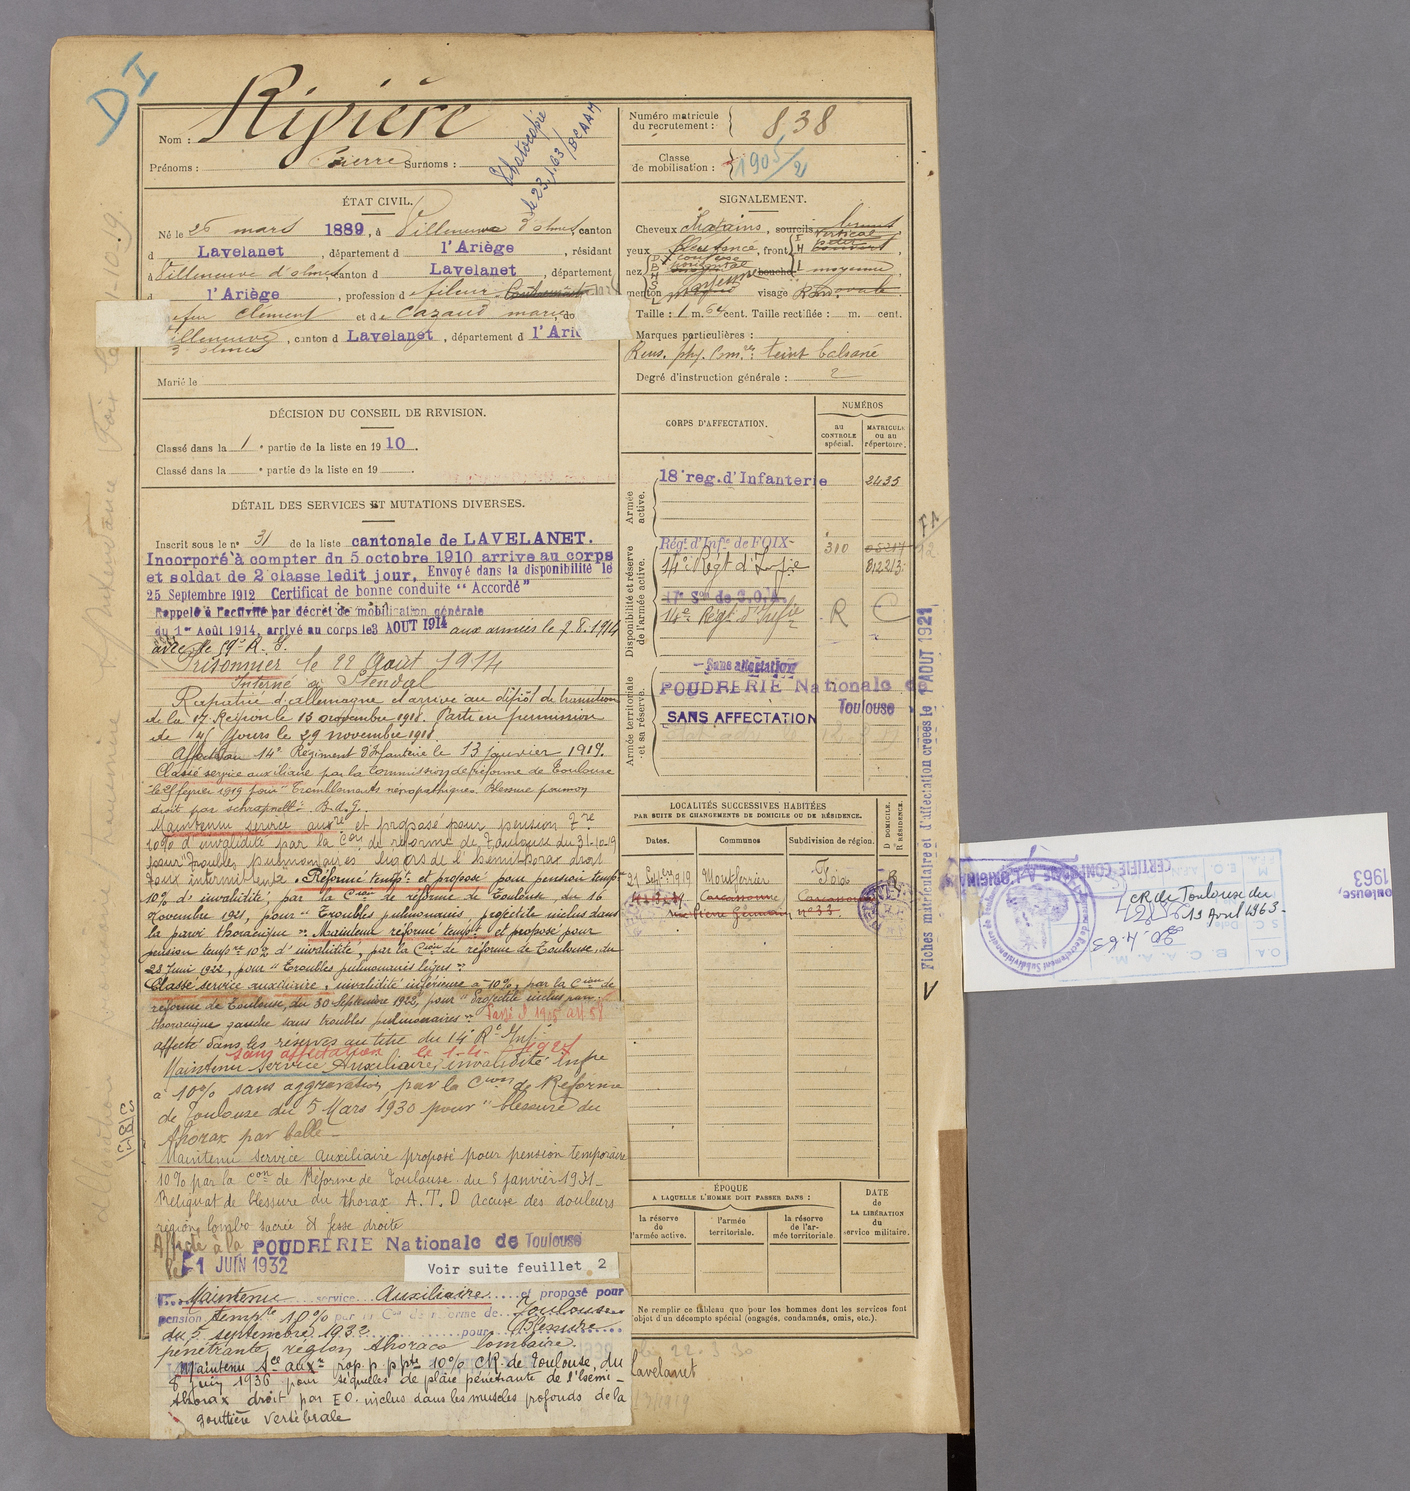 DI
Nom : Rivière
Prénoms : Pierre Surnoms :
Photocopié
le 23.1.63
BCAAM
ÉTAT CIVIL.
Né le 25 mars 1889, à Villeneuve d'olmes, canton
d Lavelanet, département d l'Ariège, résidant
à Villeneuve d'olmes, canton d Lavelanet, département
d l'Ariège, profession de fileur
feu Clément et de Cazaud marie, do
Villeneuve d'olmes, canton d Lavelanet, département d l'Ari
Marié le
DÉCISION DU CONSEIL DE REVISION.
Classé dans la 1e partie de la liste en 1910.
Classé dans la e partie de la liste en 19 .
DÉTAIL DES SERVICES ET MUTATIONS DIVERSES.
Inscrit sous le n° 31 de la liste cantonale de LAVELANET.
Incorporé à compter du 5 octobre 1910 arrive au corps
et soldat de 2e classe ledit jour. Envoyé dans la disponibilité le
25 Septembre 1912 Certificat de bonne conduite "Accordé"
Rappelé à l'activité par décret de mobilisation générale
du 1er Août 1914, arrivé au corps le 3 AOUT 1914 aux armées le 7.8.1914
avec le 59e R. I.
Prisonnier le 22 Août 1914
Interné à Stendal
Rapatrié d'allemagne et arrivé au dépôt de transition
de la 17e Région le 13 novembre 1918. Parti en permission
de Jours le 29 novembre 1918.
Affecté au 14e Régiment d'Infanterie le 13 janvier 1919.
Classé service auxiliaire par la Commission de réforme de Toulouse
le février 1919 pour "Tremblements névropathiques. Blessure poumon
droit par schrapnell". B.d.G.
Maintenu service auxre et proposé pour pension Tre
10% d'invalidité par la Con de réforme de Toulouse du 31-10-19
pour "Troubles pulmonaires légers de l'hémithorax droit
Toux intermittente. Réformé tempre et proposé pour pension tempre
10% d'invalidité, par la Cion de réforme de Toulouse, du 16
Novembre 1921, pour "Troubles pulmonaires, projectile inclus dans
la paroi thoracique". Maintenu réformé tempre et proposé pour
pension tempre 10% d'invalidité, par la Cion de réforme de Toulouse, du
28 Juin 1922, pour "Troubles pulmonaires légers".
Classé service auxiliaire, invalidité inférieure à 10%, par la Cion de
réforme de Toulouse, du 30 Septembre 1922, pour "Projectile inclus paroi
thoracique gauche sans troubles pulmonaires". Passé Cl 1905 art 58
affecté dans les réserves au titre du 14e R. Inf.
sans affectation le 1-4- 1927
Maintenu Service Auxiliaire, invalidité infre
à 10% sans aggravation, par la Cion de Réforme
de Toulouse du 5 Mars 1930 pour "blessure du
thorax par balle
Maintenu service auxiliaire proposé pour pension temporaire
10% par la Con de Réforme de Toulouse du 5 janvier 1931
Reliquat de blessure du thorax A.T.D Accuse des douleurs
région lombo sacrée et fesse droite
Affecté à la POUDRERIE Nationale de Toulouse
le 1 JUIN 1932
Voir suite feuillet 2
Maintenu service Auxiliaire et proposé pour
pension tempre 10% par la Con de réforme de Toulouse
du 5 septembre 1932 pour Blessure
pénétrante région thoraco lombaire.
Maintenu Sce auxre prop. p. ppte 10% CR de Toulouse, du
8 juin 1936 pour séquelles de plaie pénétrante de l'hémi-
thorax droit par EO. inclus dans les muscles profonds de la
gouttière vertébrale
Numéro matricule du recrutement : 838
Classe de mobilisation : 1905/2
SIGNALEMENT.
Cheveux Chatains, sourcils bruns
yeux , front
nez , bouche moyenne
menton visage Rond ovale
Taille : 1 m. 64 cent. Taille rectifiée : m. cent.
Marques particulières :
Rens. phy. Comres : teint basané
Degré d'instruction générale : 2
CORPS D'AFFECTATION.
NUMÉROS
AU CONTROLE spécial.
MATRICULE ou au répertoire.
Armée active.
18e reg. d'Infanterie 2435
Disponibilité et réserve de l'armée active.
Régt d'Infie de FOIX 310
14e Régt d'Infie
17e Son de C.O.A.
14e Régt d'Infie R C
Armée territoriale et sa réserve.
Sans affectation
POUDRERIE Nationale de Toulouse
SANS AFFECTATION
LOCALITÉS SUCCESSIVES HABITÉES
PAR SUITE DE CHANGEMENTS DE DOMICILE OU DE RÉSIDENCE.
Dates. Communes Subdivision de région. D DOMICILE. R RÉSIDENCE.
21 Septbre 1919 Montferrier Foix R
Carcassonne Carcassonne
rue Pierre Germain n° 33
ÉPOQUE
A LAQUELLE L'HOMME DOIT PASSER DANS :
la réserve de l'armée active.
l'armée territoriale.
la réserve de l'armée territoriale.
DATE DE LA LIBÉRATION du service militaire.
Ne remplir ce tableau que pour les hommes dont les services font
l'objet d'un décompte spécial (engagés, condamnés, omis, etc.).
Lavelanet
Fiches matriculaire et d'affectation créées le AOUT 1921
V
CERTIFIÉ CONFORME A L'ORIGINAL
CR de Toulouse du
19 Avril 1963
B.C.A.A.M.
Toulouse,
1963